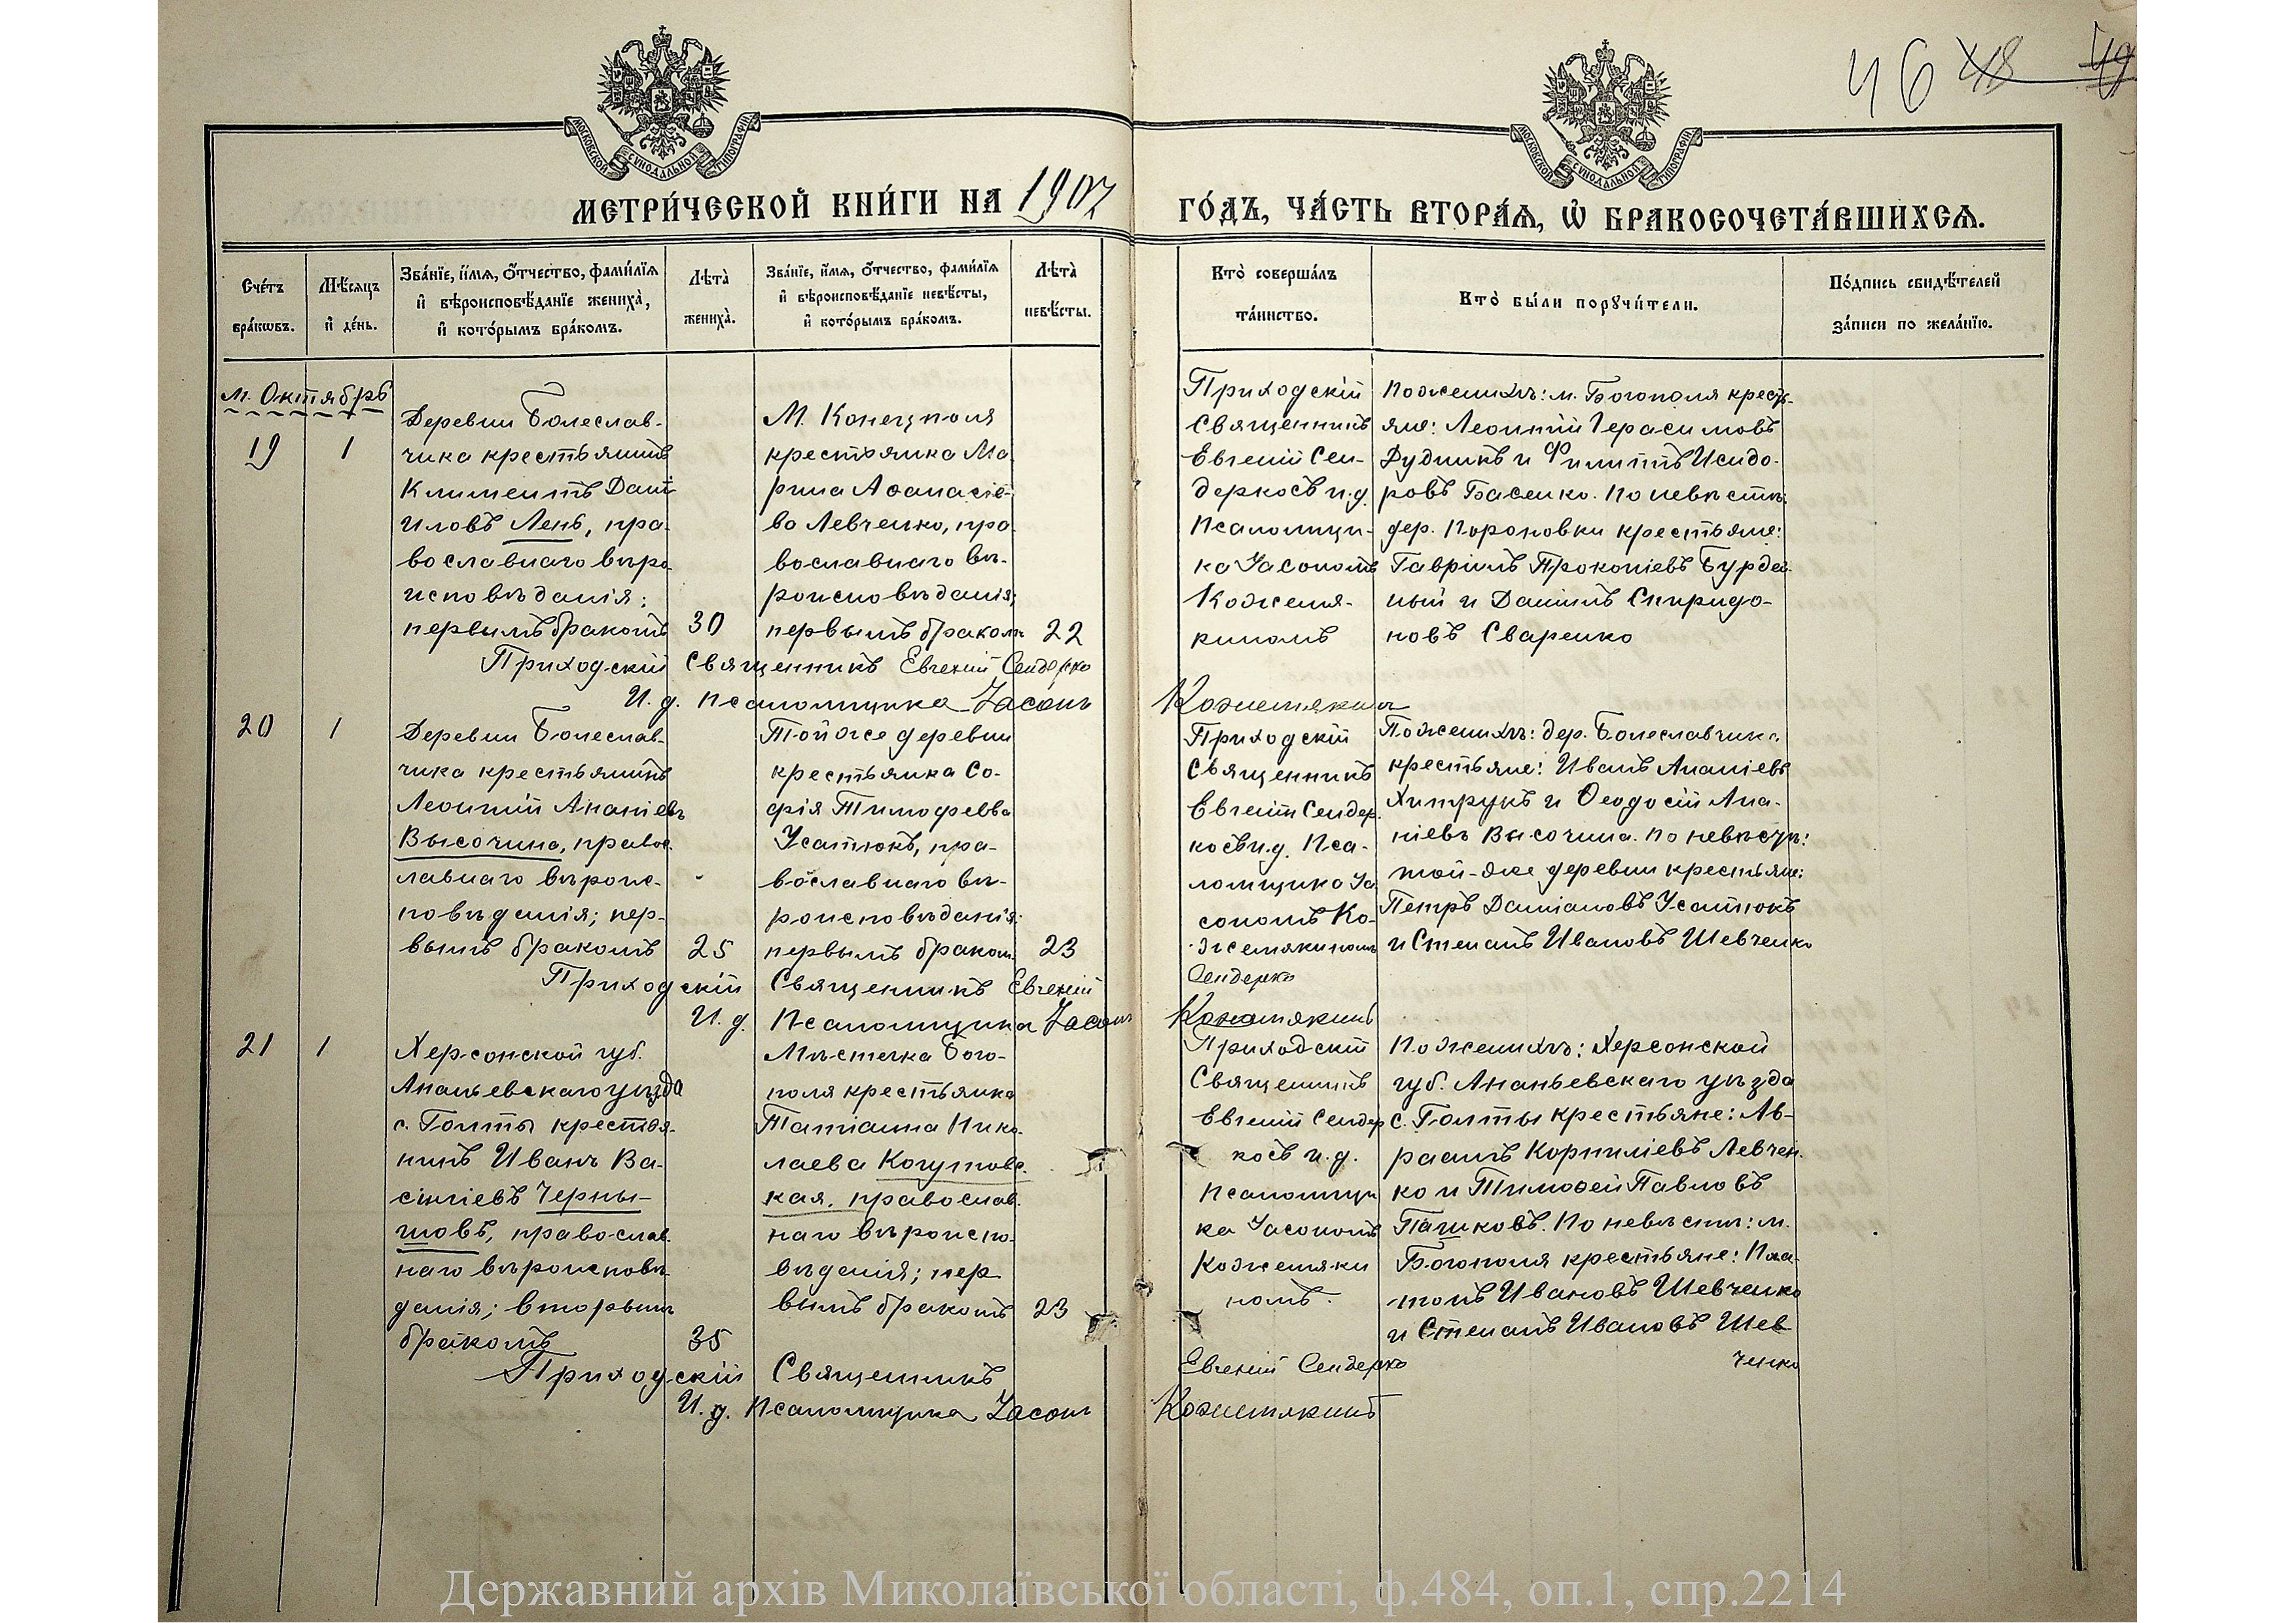 46 48 49
МОСКОВСКОЙ СѴНОДАЛЬНОЙ ТИПОГРАФІИ
МОСКОВСКОЙ СѴНОДАЛЬНОЙ ТИПОГРАФІИ
МЕТРИ́ЧЕСКОЙ КНИ́ГИ НА 1907 ГО́ДЪ, ЧА́СТЬ ВТОРА́Ѧ, Ѽ БРАКОСОЧЕТА́ВШИХСѦ.
Сче́тъ бра́кѡвъ.
Мѣ́сѧцъ и҆ де́нь.
Зва́нїе, и҆́мѧ, ѻ҆́тчество, фами́лїѧ
и҆ вѣроисповѣ́данїе жениха̀,
и҆ кото́рымъ бра́комъ.
Лѣта̀ жениха̀.
Зва́нїе, и҆́мѧ, ѻ҆́тчество, фами́лїѧ
и҆ вѣроисповѣ́данїе невѣ́сты,
и҆ кото́рымъ бра́комъ.
Лѣта̀ невѣ́сты.
Кто̀ соверша́лъ
та́инство.
Кто̀ бы́ли порꙋчи́тели.
По́дпись свидѣ́телей
за́писи по жела́нїю.
м. Октябрь
19
1
Деревни Болеслав-
чика крестьянинъ
Климентъ Дані
иловъ Лень, пра-
вославнаго вѣро
исповѣданія;
первымъ бракомъ
30
М. Конецполя
крестьянка Ма
рина Аѳанасіе-
ва Левченко, пра-
вославнаго вѣ-
роисповѣданія;
первымъ бракомъ
22
Приходскій
Священникъ
Евгеній Сен-
дерковъ и.д.
Псаломщи-
ка Іасономъ
Кожемя-
кинымъ
По женихѣ: м. Богополя кресть-
яне: Леонтій Герасимовъ
Дудникъ и Филиппъ Исидо-
ровъ Басенко. По невѣстѣ:
дер. Пороновки крестьяне:
Гавріилъ Прокопіевъ Бурдей-
ный и Даніилъ Спиридо-
новъ Сваренко
Приходскій Священникъ Евгеній Сендерко
И. д. Псаломщика Іасонъ Кожемякинъ
20
1
Деревни Болеслав-
чика крестьянинъ
Леонтій Ананіевъ
Высочина, правос-
лавнаго вѣроис-
повѣданія; пер-
вымъ бракомъ
25
Той же деревни
крестьянка Со-
фія Тимофеева
Усатюкъ, пра-
вославнаго вѣ-
роисповѣданія;
первымъ бракомъ
23
Приходскій
Священникъ
Евгеній Сендер-
ковъ и.д. Пса-
ломщика Іа
сономъ Ко-
жемякинымъ
По женихѣ: дер. Болеславчика
крестьяне: Иванъ Ананіевъ
Хитрукъ и Ѳеодосій Ана-
ніевъ Высочина. По невѣстѣ:
той-же деревни крестьяне:
Петръ Даміановъ Усатюкъ
и Степанъ Ивановъ Шевченко
Приходскій Священникъ Евгеній Сендерко
И. д. Псаломщика Іасонъ Кожемякинъ
21
1
Херсонской губ.
Ананьевскаго уѣзда
с. Голты крестья-
нинъ Иванъ Ва-
силіевъ Черны-
шовъ, православ-
наго вѣроисповѣ-
данія; вторымъ
бракомъ
35
Мѣстечка Бого-
поля крестьянка
Татіанна Нико-
лаева Когутовс-
кая, православ-
наго вѣроиспо-
вѣданія; пер
вымъ бракомъ
23
Приходскій
Священникъ
Евгеній Сендер
ковъ и.д.
Псаломщи
ка Іасономъ
Кожемяки
номъ.
По женихѣ: Херсонской
губ. Ананьевскаго уѣзда
с. Голты крестьяне: Ав-
раамъ Корниліевъ Левчен-
ко и Тимоѳей Павловъ
Пашковъ. По невѣстѣ: м.
Богополя крестьяне: Пла-
тонъ Ивановъ Шевченко
и Степанъ Ивановъ Шев
ченко
Приходскій Священникъ Евгеній Сендерко
И. д. Псаломщика Іасонъ Кожемякинъ
Державний архів Миколаївської області, ф.484, оп.1, спр.2214